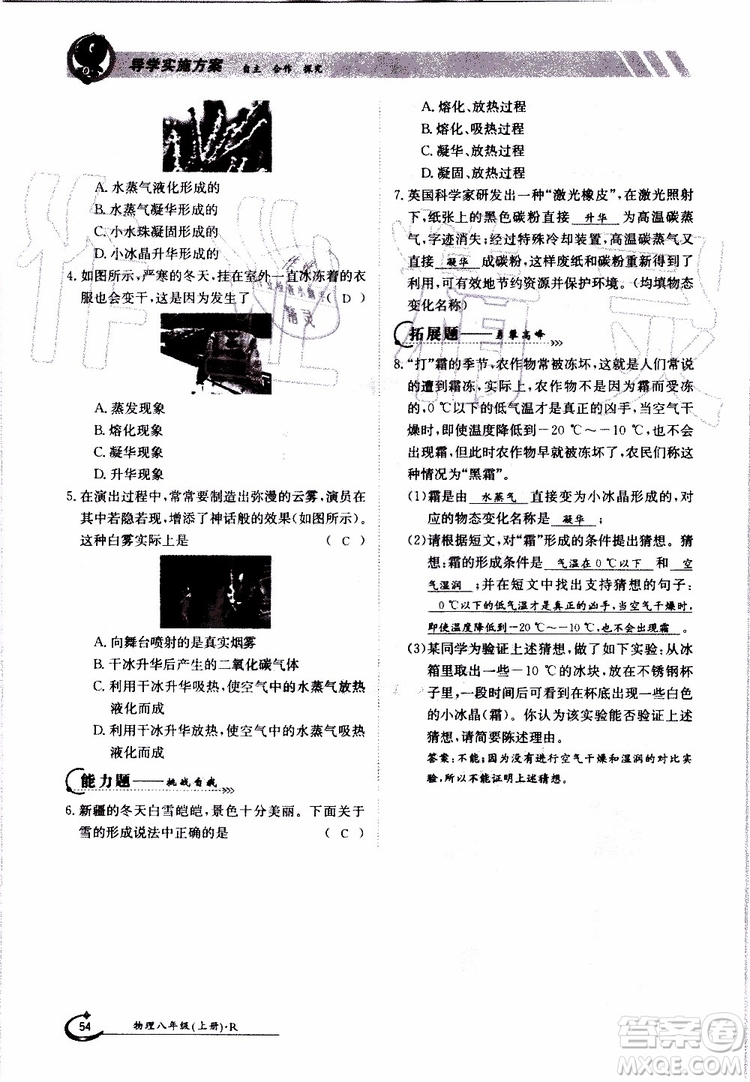 导学实施方案 自主 合作 探究
A. 水蒸气液化形成的
B. 水蒸气凝华形成的
C. 小水珠凝固形成的
D. 小冰晶升华形成的
4. 如图所示，严寒的冬天，挂在室外一直冰冻着的衣
服也会变干，这是因为发生了 （ D ）
A. 蒸发现象
B. 熔化现象
C. 凝华现象
D. 升华现象
5. 在演出过程中，常常要制造出弥漫的云雾，演员在
其中若隐若现，增添了神话般的效果(如图所示)。
这种白雾实际上是 （ C ）
A. 向舞台喷射的是真实烟雾
B. 干冰升华后产生的二氧化碳气体
C. 利用干冰升华吸热，使空气中的水蒸气放热
液化而成
D. 利用干冰升华放热，使空气中的水蒸气吸热
液化而成
能力题——挑战自我
6. 新疆的冬天白雪皑皑，景色十分美丽。下面关于
雪的形成说法中正确的是 （ C ）
A. 熔化、放热过程
B. 熔化、吸热过程
C. 凝华、放热过程
D. 凝固、放热过程
7. 英国科学家研发出一种“激光橡皮”，在激光照射
下，纸张上的黑色碳粉直接 升华 为高温碳蒸
气，字迹消失；经过特殊冷却装置，高温碳蒸气又
直接 凝华 成碳粉，这样废纸和碳粉就得到了再
利用，可有效地节约资源并保护环境。(均填物态
变化名称)
拓展题——勇攀高峰
8. “打”霜的季节，农作物常被冻坏，这就是人们常说
的遭到霜冻，实际上，农作物不是因为霜而受冻
的，0 ℃以下的低气温才是真正的凶手，当空气干
燥时，即使温度降低到－20 ℃～－10 ℃，也不会
出现霜，但此时农作物早就被冻坏了，农民们称
这种情况为“黑霜”。
(1)霜是由 水蒸气 直接变为小冰晶形成的，对
应的物态变化名称是 凝华 。
(2)请根据短文，对“霜”形成的条件提出猜想。猜
想：霜的形成条件是 气温在0 ℃以下 和 空
气湿润 ；并在短文中找出支持猜想的句子：
0 ℃以下的低气温才是真正的凶手，当空气干燥时，
即使温度降低到－20 ℃～－10 ℃，也不会出现霜 。
(3)某同学为验证上述猜想，做了如下实验：从冰
箱里取出一些－10 ℃的冰块，放在不锈钢杯
子里，一段时间后可看到在杯底出现一些白色
的小冰晶(霜)。你认为该实验能否验证上述
猜想，请简要陈述理由。
答案：不能，因没有进行空气干燥和湿润的对比实
验，所以不能证明上述猜想。
54 物理八年级(上册)·R
答案圈
MXQE.COM